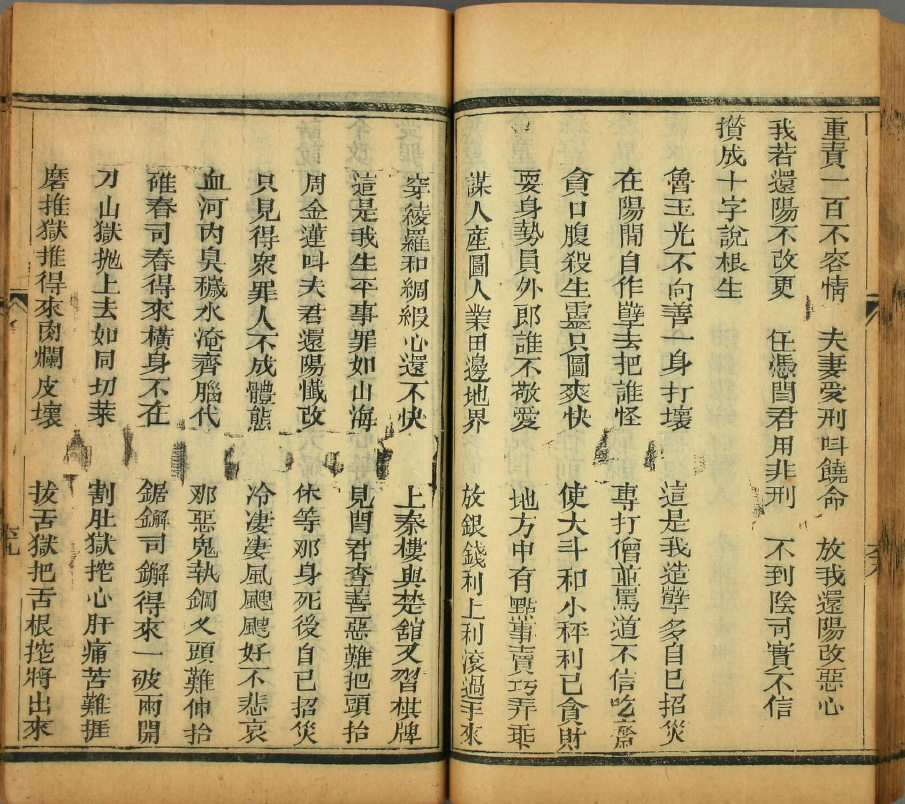 重責一百不容情　夫妻受刑呌饒命　放我還陽改惡心
我若還陽不改更　任憑閻君用非刑　不到陰司實不信
攅成十字說根生
魯玉光不向善一身打壞　這是我造孽多自己招災
在陽間自作孽去把誰怪　專打僧並罵道不信吃齋
貪口腹殺生靈只圖爽快　使大斗和小秤利己貪財
耍身勢員外郎誰不敬愛　地方中有點事賣巧弄乖
謀人產圖人業田邊地界　放銀錢利上利滾過手來
穿綾羅和綢緞心還不快　上秦樓與楚舘又習棋牌
這是我生平事罪如山海　見閻君查善惡難把頭抬
周金蓮呌夫君還陽懺改　休等那身死後自己招災
只見得衆罪人不成體態　冷凄凄風颼颼好不悲哀
血河內臭穢水淹齊腦代　那惡鬼執鋼叉頭難伸抬
碓舂司舂得來橫身不在　鋸鐁司鐁得來一破兩開
刀山獄抛上去如同切菜　割肚獄挖心肝痛苦難捱
磨推獄推得來肉爛皮壞　拔舌獄把舌根挖將出來